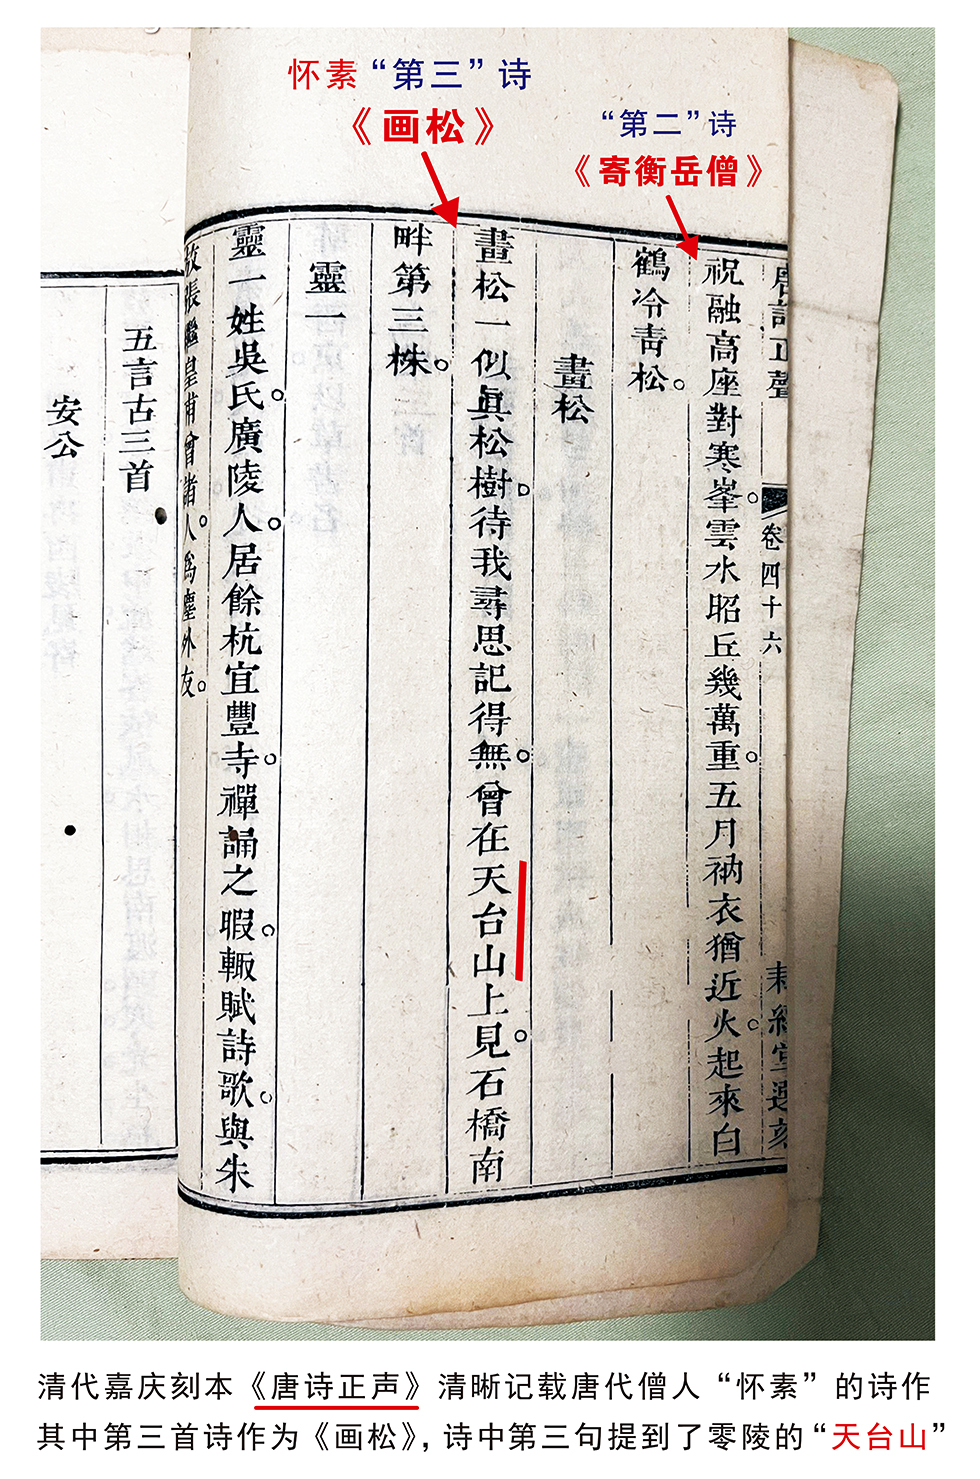 怀素“第三”诗
《画松》
“第二”诗
《寄衡岳僧》
唐詩正聲
卷四十六
祝融高座對寒峯雲水昭丘幾萬重五月衲衣猶近火起來白
鶴冷青松
畫松
畫松一似眞松樹待我尋思記得無曾在天台山上見石橋南
畔第三株
靈一
靈一姓吳氏廣陵人居餘杭宜豐寺禪誦之暇輙賦詩歌與朱
放張繼皇甫曾諸人爲塵外友
五言古三首
安公
清代嘉庆刻本《唐诗正声》清晰记载唐代僧人“怀素”的诗作
其中第三首诗作为《画松》，诗中第三句提到了零陵的“天台山”